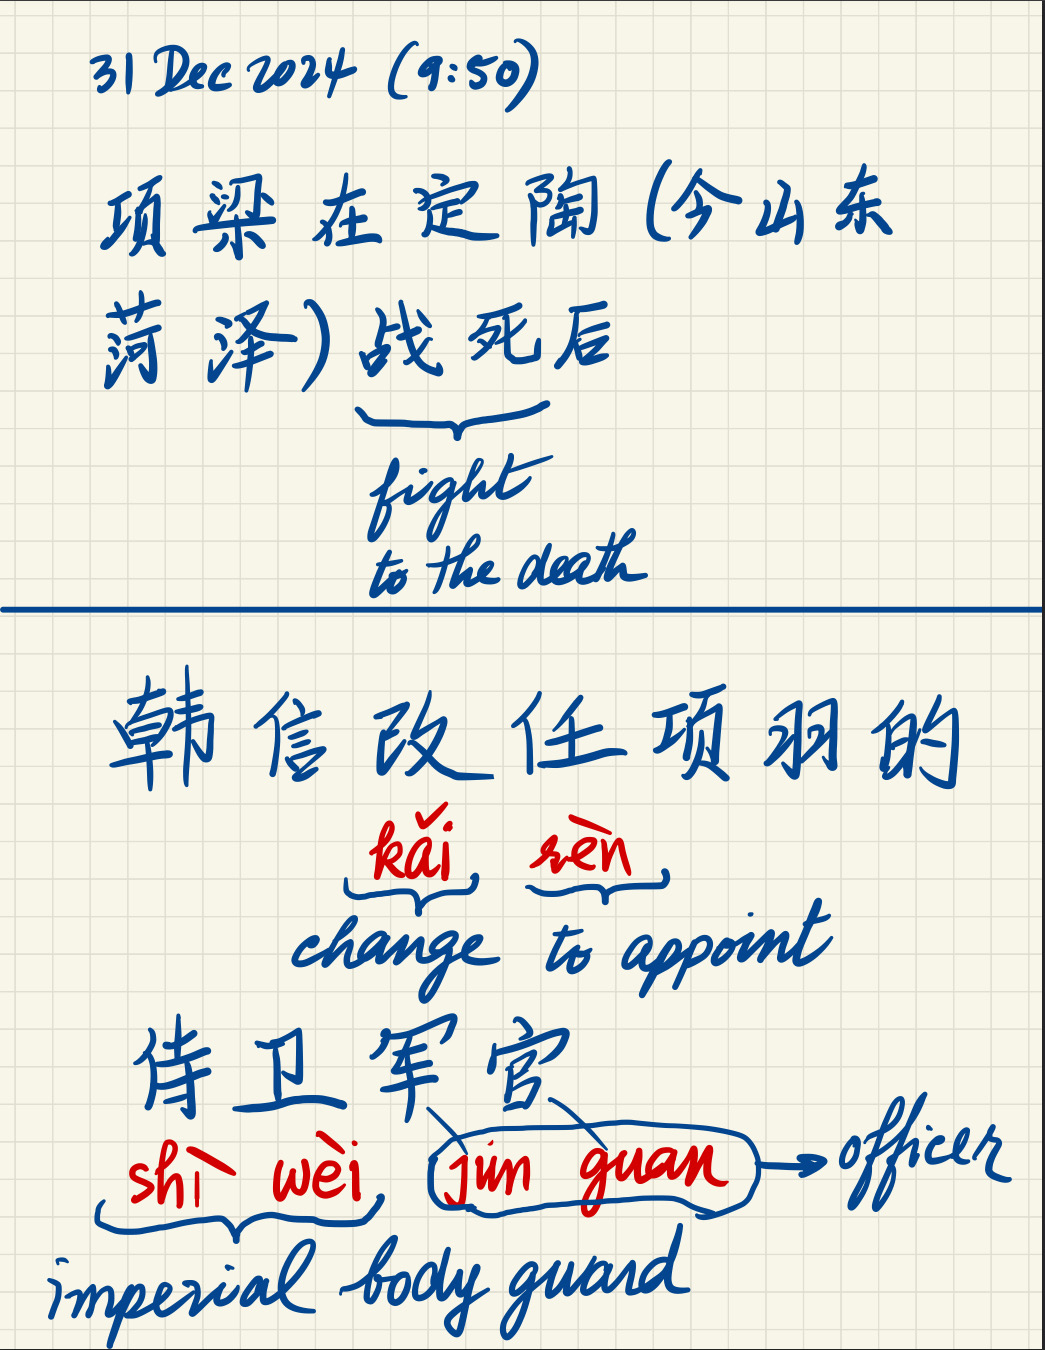 31 Dec 2024 (9:50)
项梁在定陶(今山东
菏泽)战死后
fight
to the death
韩信改任项羽的
kǎi rèn
change to appoint
侍卫军官
shì wèi jūn guan
officer
imperial body guard